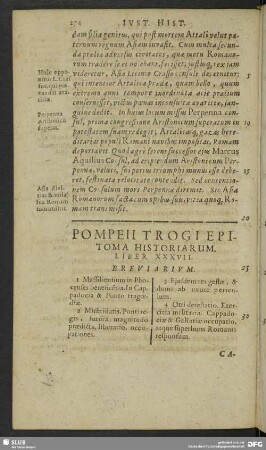 276 IVST. HIST.
dam filia genitus, qui post mortem Attali velut pa-
ternum regnum Asiam invasit. Cum multa secun-
da prælia adversus civitates, quæ metu Romano-
rum tradere se ei nolebant, fecisset, justusq́; rex jam
videretur, Asia Licinio Crasso consuli decernitur:
qui intentior Attalicæ prædæ, quàm bello, quum
extremo anni tempore inordinata acie prælium
conseruisset, victus pœnas inconsultæ avaritiæ, san-
guine dedit. In hujus locum missus Perpenna con-
sul, prima congressione Aristonicum superatum in
potestatem suam redegit, Attalicasq́; gazas here-
ditarias populi Romani navibus impositas, Romam
deportavit. Quod ægrè ferens successor ejus Marcus
Aquilius Consul, ad eripiendum Aristonicum Per-
pennæ, veluti sui potius triumphi munus esse debe-
ret, festinata velocitate contendit. Sed contentio-
nem Consulum mors Perpennæ diremit. Sic Asia
Romanorum facta cum opibus suis vitia quoq́; Ro-
mam transmisit.
5
20
Perpenna
Aristonicum
POMPEII TROGI EPI-
TOMA HISTORIARUM.
LIBER XXXVII.
BREVIARIUM.
25
1 Massiliensium in Pho-
censes beneficia. In Cap-
padocia & Ponto tragœ-
diæ.
2 Mithridatis, Ponti re-
gis, futura magnitudo
prædicta, libido, occu-
pationes.
3 Ejusdem res gestæ, &
domi ab uxore pericu-
lum.
4 Otii detestatio. Exer-
citia militaria. Cappado-
ciæ & Galatiæ occupatio,
atque superbum Romanis
responsum.
30
CA-
SLUB